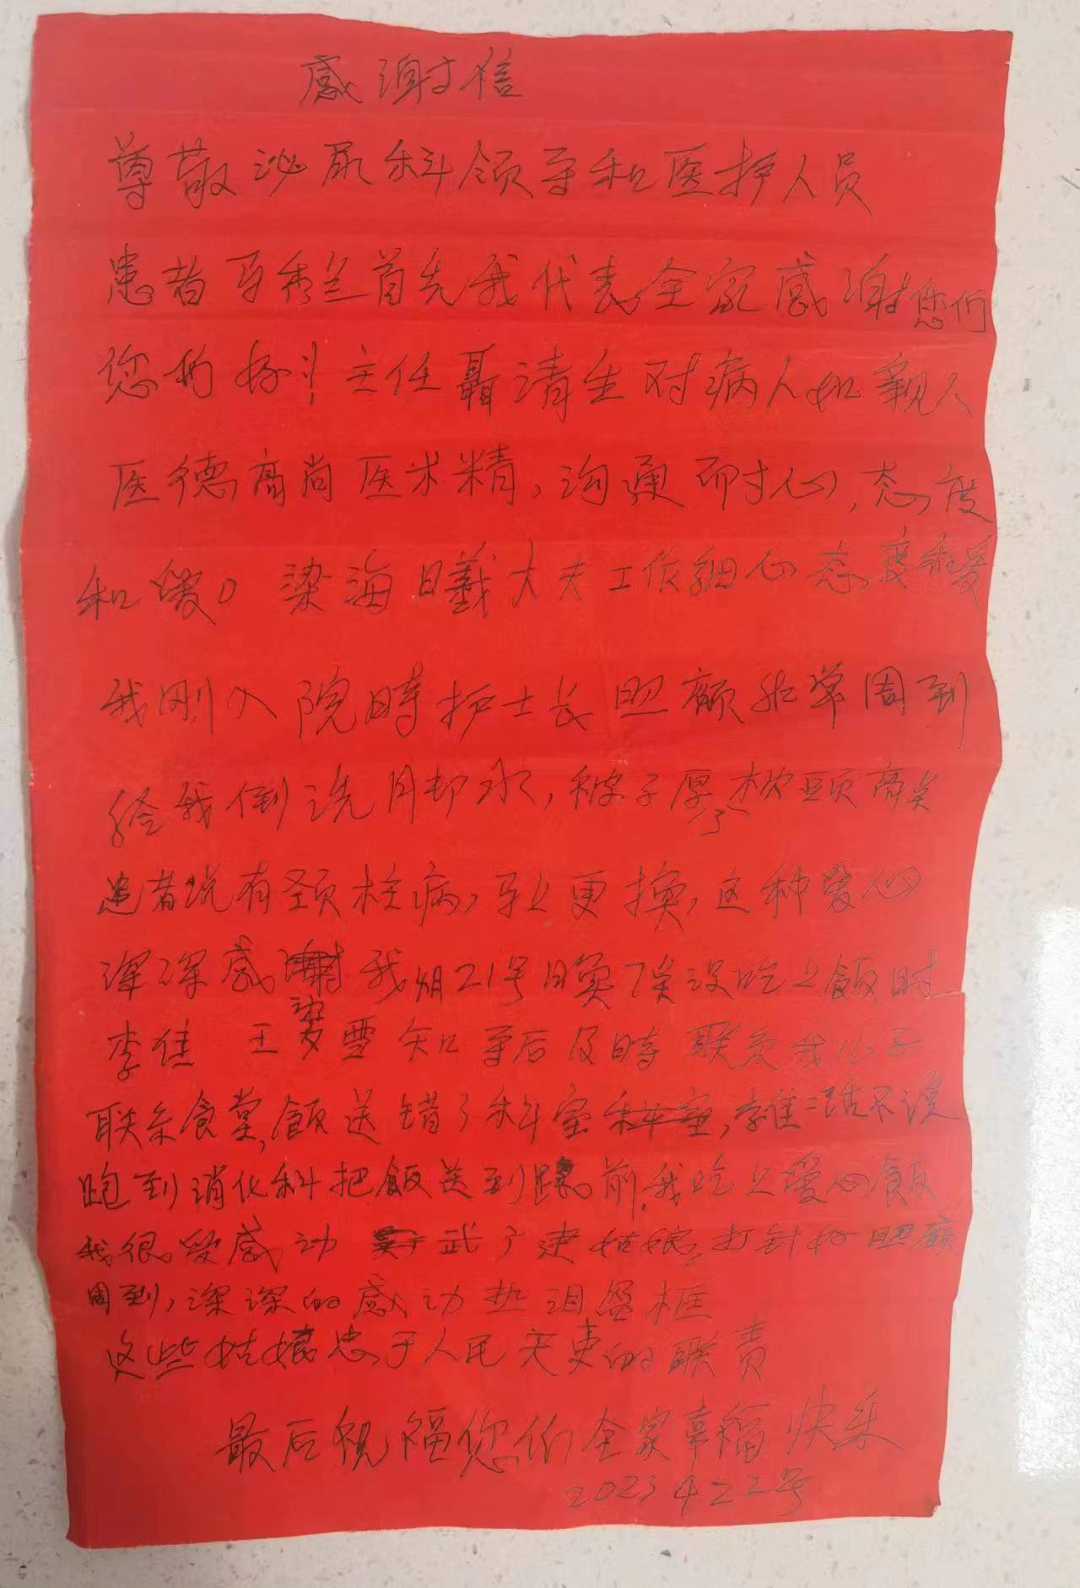 感谢信
尊敬泌尿科领导和医护人员
患者马秀兰首先我代表全家感谢您们
您们好! 主任聂清生对病人如亲人
医德高尚医术精，沟通耐心，态度
和爱。梁海曦大夫工作细心态度和爱
我刚入院時护士长照顾非常周到
给我倒洗脚水，被子厚了枕頭高矣
患者说有颈椎病，马上更换，这种爱心
深深感谢我 21号 没吃上飯时
李佳 王梦雪知导后及時联系我儿子
联系食堂，飯送错了科室，李佳二话不说
跑到消化科把飯送到跟前，我吃上爱心飯
我很受感动 武 建姑娘，打针好照顾
周到，深深的感动热泪盈框
这些姑娘忠于人民天使的联责
最后祝福您们全家幸福快乐
2023 4 22号